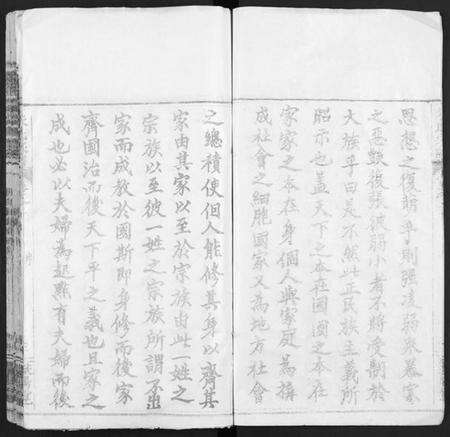 思想之復萌乎則强凌弱眾暴寡
之惡獸復發彼弱小者不將受制於
大族乎曰是不然此正民族主義所
昭示也蓋天下之本在國國之本在
家家之本在身個人與家庭為撰
成社會之細胞國家又為地方社會
之總積使個人能修其身以齊其
家由其家以至於宗族由此一姓之
宗族以至彼一姓之宗族所謂不出
家而成教於國斯即身修而後家
齊國治而後天下平之義也且家之
成也必以夫婦為起點有夫婦而後